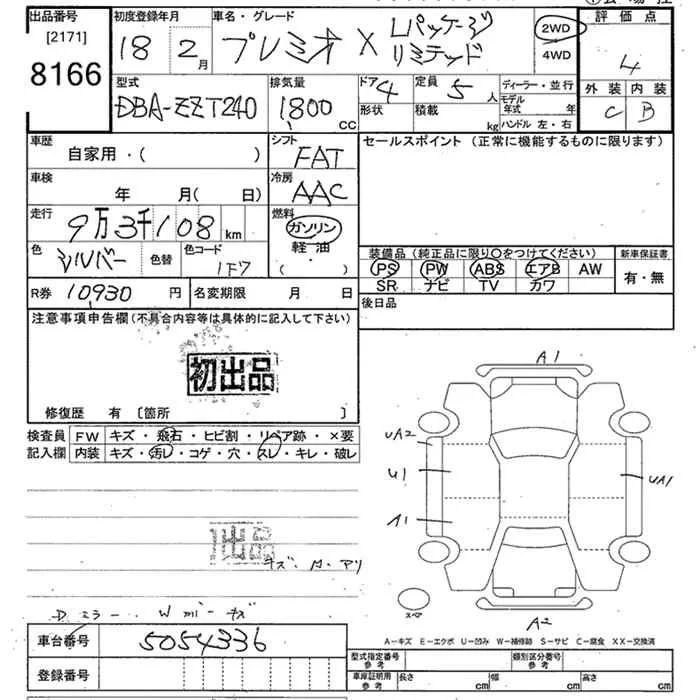 出品番号
[2171]
8166
初度登録年月
18 2月
車名・グレード
プレミオ X Lパッケージ
リミテッド
2WD
4WD
評価点
4
外装 内装
C B
型式
DBA-ZZT240
排気量
1800 CC
ドア 4
形状
定員 5 人
積載 kg
ディーラー・並行
モデル年式 年
ハンドル 左・右
車歴
自家用・( )
シフト
FAT
セールスポイント (正常に機能するものに限ります)
車検
年 月( 日)
冷房
AAC
走行
9万3千108 km
燃料
ガソリン
軽・油
・( )
色
シルバー
色替
色コード
1F7
装備品(純正品に限り○をつけてください)
PS PW ABS エアB AW
SR ナビ TV カワ
新車保証書
有・無
R券 10930 円
名変期限 月 日
後日品
注意事項申告欄(不具合内容等は具体的に記入して下さい)
初出品
修復歴 有 [箇所 ]
検査員
記入欄
FW キズ・飛石・ヒビ割・リペア跡・×要
内装 キズ・汚レ・コゲ・穴・スレ・キレ・破レ
初出品
キズ・M・アリ
Dミラー Wガバーキズ
A1
UA2
U1
A1
UA1
A2
スペア
A-キズ E-エクボ U-凹み W-補修跡 S-サビ C-腐食 XX-交換済
車台番号 5054336
登録番号
型式指定番号
参考
類別区分番号
参考
車庫証明用
参考
長さ cm
幅 cm
高さ cm